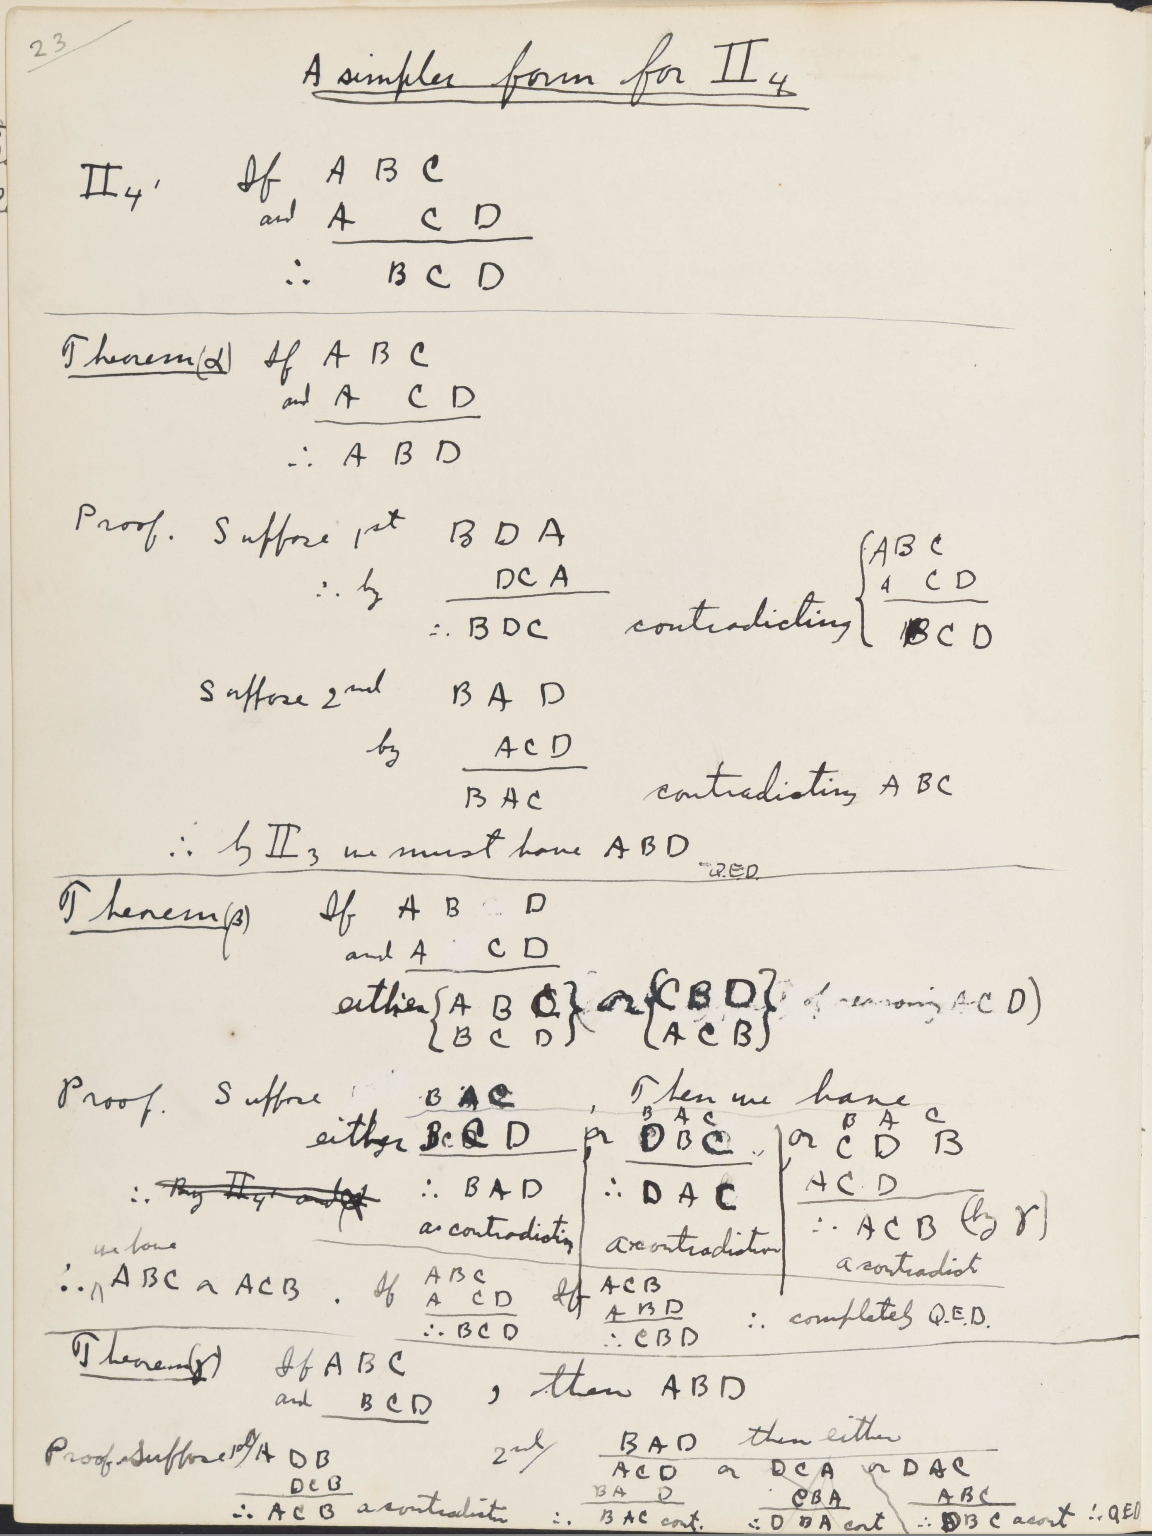 23
A simpler form for II4
II4' If A B C
and A C D
∴ B C D
Theorem (α) If A B C
and A C D
∴ A B D
Proof. Suppose 1st B D A
∴ by D C A
∴ B D C contradicting { A B C
A C D
B C D
Suppose 2nd B A D
by A C D
B A C contradicting A B C
∴ by II3 we must have A B D Q.E.D.
Theorem (β) If A B D
and A C D
either { A B C } or { C B D } of reasoning A C D)
{ B C D } { A C B }
Proof. Suppose B A C , Then we have
either B C D or B A C D B C or B A C C D B
A C D
∴ By II4' and α ∴ B A D ∴ D A C ∴ A C B (by γ)
a contradictin a contradiction a contradict
we have
∴ A B C or A C B . If A B C If A C B
A C D A B D ∴ completely Q.E.D.
∴ B C D ∴ C B D
Theorem (γ) If A B C
and B C D , then A B D
Proof. Suppose 1st/ A D B 2nd/ B A D then either
D C B A C D or D C A or D A C
∴ A C B a contradictn B A D C B A A B C
∴ B A C cont. ∴ D B A cont ∴ D B C a cont ∴ QED